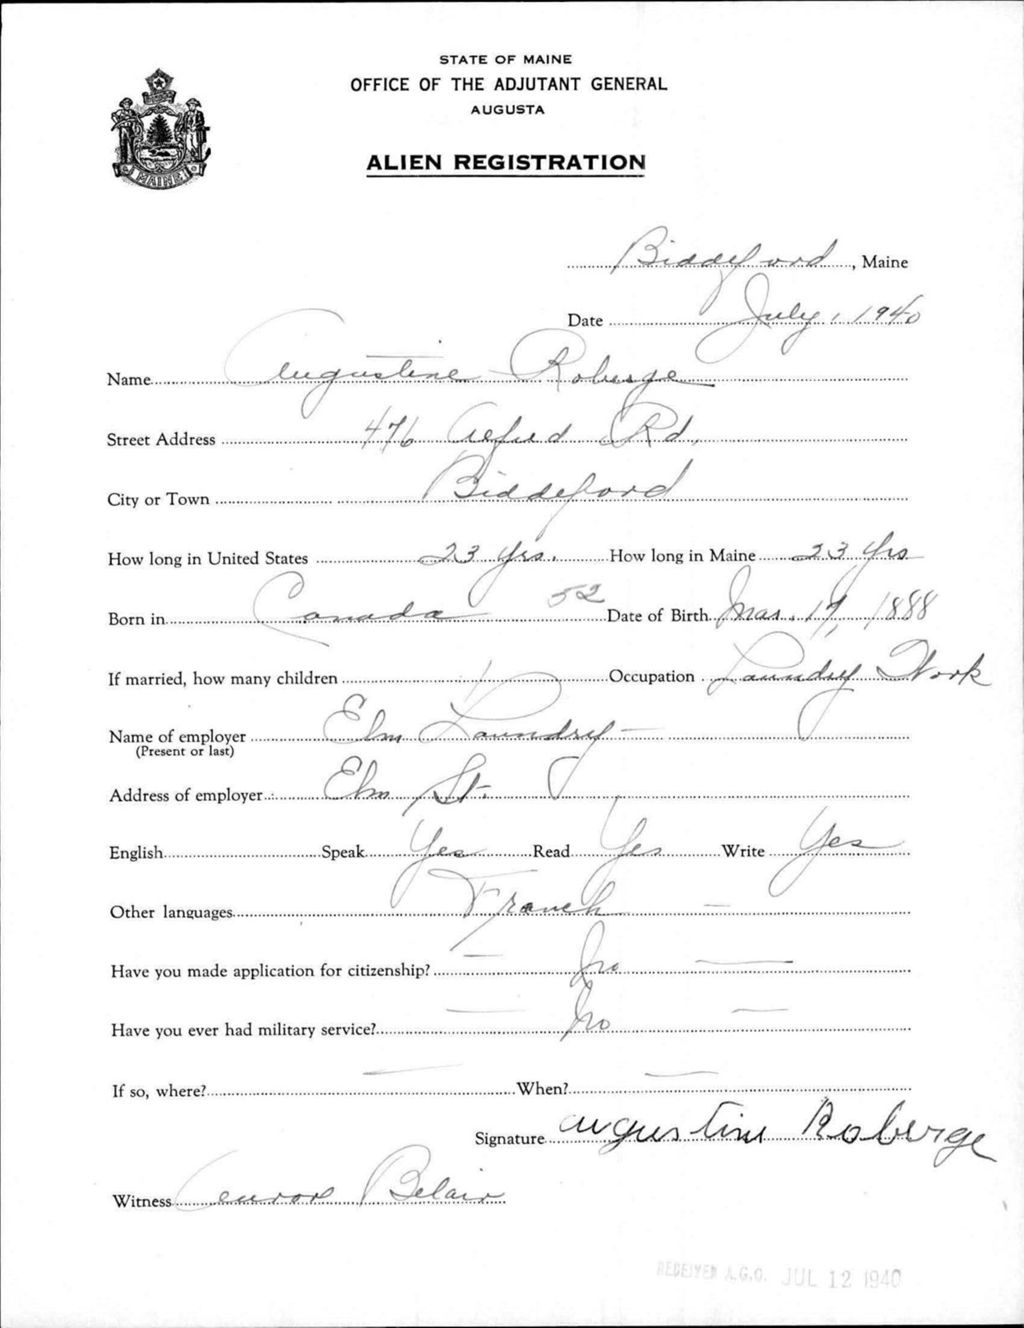 STATE OF MAINE
OFFICE OF THE ADJUTANT GENERAL
AUGUSTA
ALIEN REGISTRATION
MAINE
Biddeford, Maine
Date July, 1940
Name Augustine Roberge
Street Address 476 Alfred Rd.
City or Town Biddeford
How long in United States 23 Yrs. How long in Maine 23 Yrs
Born in Canada 52 Date of Birth Mar. 17, 1888
If married, how many children Occupation Laundry Work
Name of employer Elm Laundry
(Present or last)
Address of employer Elm St.
English Speak Yes Read Yes Write Yes
Other languages French
Have you made application for citizenship? No
Have you ever had military service? No
If so, where? When?
Signature augustine Roberge
Witness Aurore Belair
RECEIVED A.G.O. JUL 12 1940